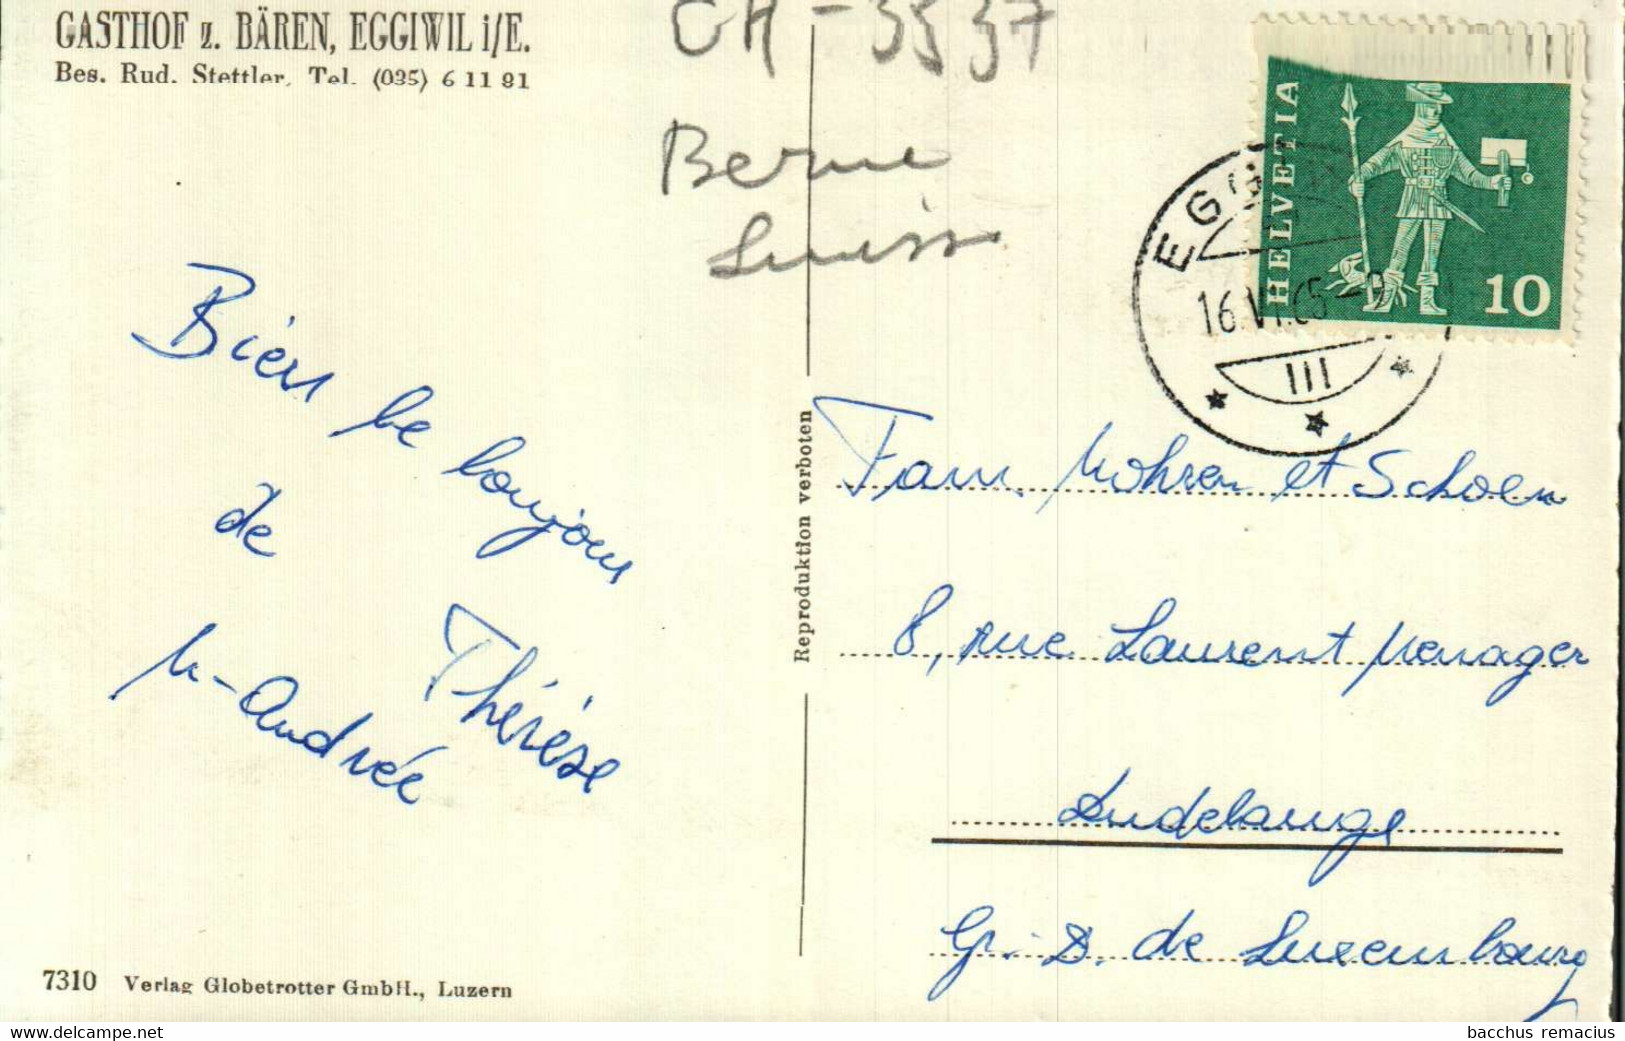 GASTHOF z. BÄREN, EGGIWIL i/E.
Bes. Rud. Stettler, Tel. (035) 6 11 91
CH - 3537
Berne
Suisse
HELVETIA
10
16.VI.65-9
III
Bien le bonjour
de
Thérèse
M-Andrée
Reproduktion verboten
Fam. Mohren et Schoen
8, rue Laurent Menager
Dudelange
Gr. D. de Luxembourg
7310 Verlag Globetrotter GmbH., Luzern
bacchus remacius
www.delcampe.net